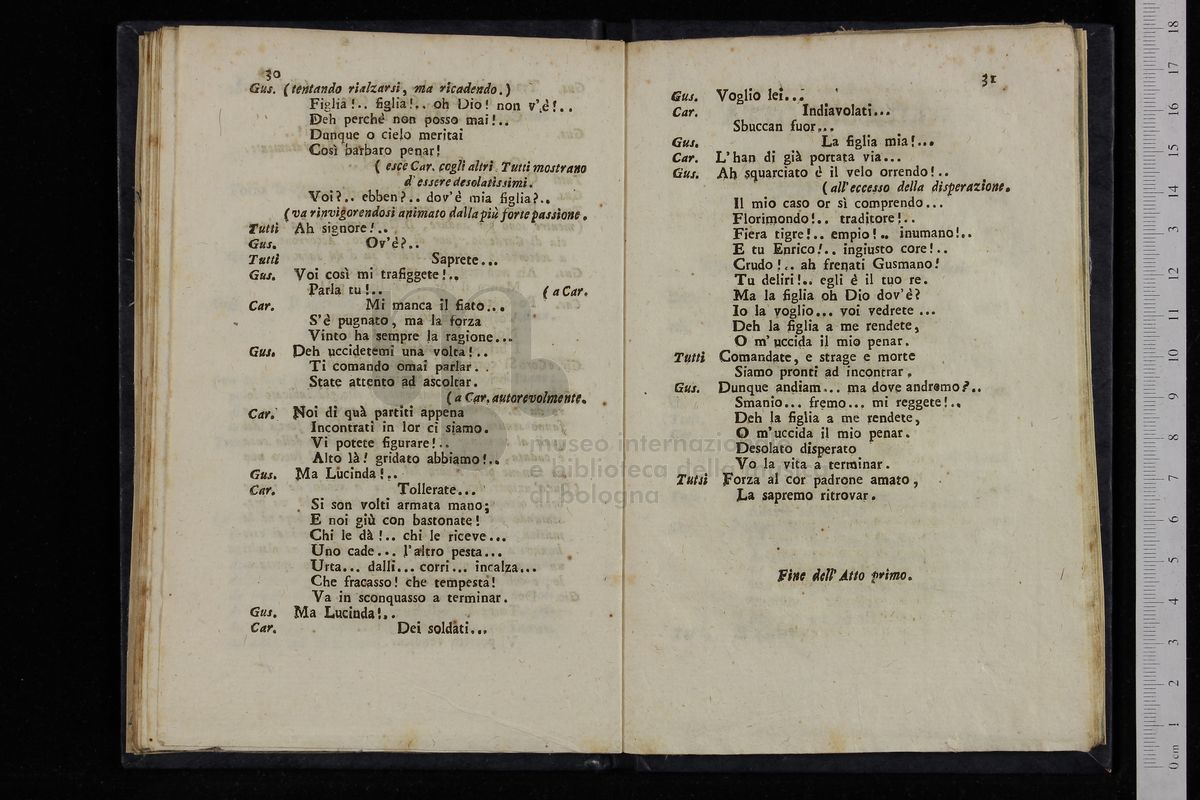 30
Gus. (tentando rialzarsi, ma ricadendo.)
Figlia!.. figlia!.. oh Dio! non v'è!..
Deh perchè non posso mai!..
Dunque o cielo meritai
Così barbaro penar!
( esce Car. cogli altri. Tutti mostrano
d'essere desolatissimi.
Voi?.. ebben?.. dov'è mia figlia?..
(va rinvigorendosi animato dalla più forte passione.
Tutti Ah signore!..
Gus. Ov'è?..
Tutti Saprete...
Gus. Voi così mi trafiggete!..
Parla tu!.. ( a Car.
Car. Mi manca il fiato...
S'è pugnato, ma la forza
Vinto ha sempre la ragione...
Gus. Deh uccidetemi una volta!..
Ti comando omai parlar. .
State attento ad ascoltar.
( a Car. autorevolmente.
Car. Noi di quà partiti appena
Incontrati in lor ci siamo.
Vi potete figurare!..
Alto là! gridato abbiamo!..
Gus. Ma Lucinda!..
Car. Tollerate...
Si son volti armata mano;
E noi giù con bastonate!
Chi le dà!.. chi le riceve...
Uno cade... l'altro pesta...
Urta... dalli... corri... incalza...
Che fracasso! che tempesta!
Va in sconquasso a terminar.
Gus. Ma Lucinda!..
Car. Dei soldati...
31
Gus. Voglio lei...
Car. Indiavolati...
Sbuccan fuor...
Gus. La figlia mia!...
Car. L'han di già portata via...
Gus. Ah squarciato è il velo orrendo!..
(all'eccesso della disperazione.
Il mio caso or sì comprendo...
Florimondo!.. traditore!..
Fiera tigre!.. empio!.. inumano!..
E tu Enrico!.. ingiusto core!..
Crudo!.. ah frenati Gusmano!
Tu deliri!.. egli è il tuo re.
Ma la figlia oh Dio dov'è?
Io la voglio... voi vedrete ...
Deh la figlia a me rendete,
O m'uccida il mio penar.
Tutti Comandate, e strage e morte
Siamo pronti ad incontrar.
Gus. Dunque andiam... ma dove andremo?..
Smanio... fremo... mi reggete!..
Deh la figlia a me rendete,
O m'uccida il mio penar.
Desolato disperato
Vo la vita a terminar.
Tutti Forza al cor padrone amato,
La sapremo ritrovar.
Fine dell'Atto primo.
museo internazionale
e biblioteca della musica
di bologna
0 cm 1 2 3 4 5 6 7 8 9 10 11 12 13 14 15 16 17 18